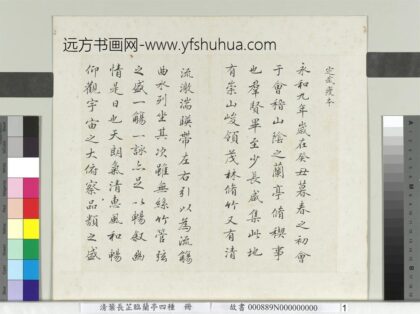 远方书画网-www.yfshuhua.com
定武瘦本
永和九年歲在癸丑暮春之初會
于會稽山陰之蘭亭脩禊事
也羣賢畢至少長咸集此地
有崇山峻領茂林脩竹又有清
流激湍暎帶左右引以為流觴
曲水列坐其次雖無絲竹管弦
之盛一觴一詠亦足以暢叙幽
情是日也天朗氣清惠風和暢
仰觀宇宙之大俯察品類之盛
清葉長芷臨蘭亭四種 冊
故書 000889N000000000
1